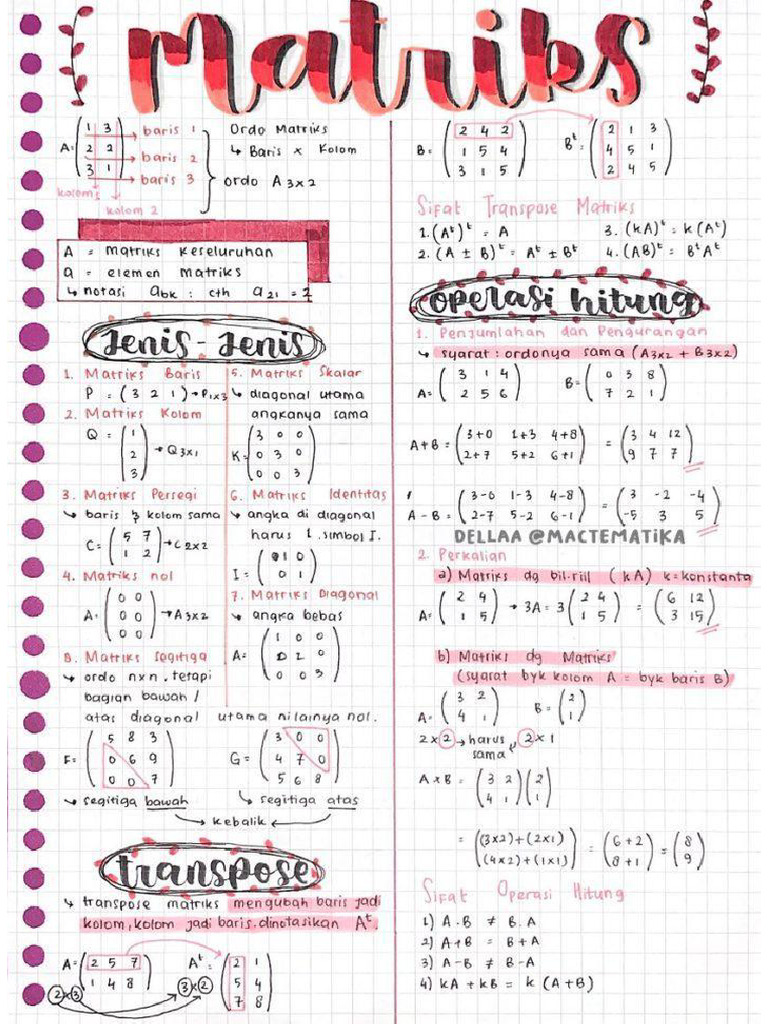 Matriks
A = ( 1 3 ) → baris 1
( 2 2 ) → baris 2
( 3 1 ) → baris 3
kolom 1
kolom 2
Ordo Matriks
↳ Baris x Kolom
ordo A 3x2
A = Matriks Keseluruhan
a = elemen Matriks
↳ notasi abk : cth a21 = 2
Jenis - Jenis
1. Matriks Baris
P = ( 3 2 1 ) → P1x3
2. Matriks Kolom
Q = ( 1 )
( 2 ) → Q3x1
( 3 )
3. Matriks Persegi
↳ baris & kolom sama
C = ( 5 7 )
( 1 2 ) → C2x2
4. Matriks nol
A = ( 0 0 )
( 0 0 ) → A3x2
( 0 0 )
5. Matriks Skalar
↳ diagonal utama
angkanya sama
K = ( 3 0 0 )
( 0 3 0 )
( 0 0 3 )
6. Matriks Identitas
↳ angka di diagonal
harus 1. simbol I.
I = ( 1 0 )
( 0 1 )
7. Matriks Diagonal
↳ angka bebas
A = ( 1 0 0 )
( 0 2 0 )
( 0 0 3 )
8. Matriks Segitiga
↳ ordo nxn, tetapi
bagian bawah /
atas diagonal utama nilainya nol.
F = ( 5 8 3 )
( 0 6 9 )
( 0 0 7 )
↳ segitiga bawah
G = ( 3 0 0 )
( 4 7 0 )
( 5 6 8 )
↳ segitiga atas
kebalik
transpose
↳ transpose matriks mengubah baris jadi
kolom, kolom jadi baris. dinotasikan Aᵗ.
A = ( 2 5 7 )
( 1 4 8 )
2 x 3
Aᵗ = ( 2 1 )
( 5 4 )
( 7 8 )
3 x 2
B = ( 2 4 2 )
( 1 5 4 )
( 3 1 5 )
Bᵗ = ( 2 1 3 )
( 4 5 1 )
( 2 4 5 )
Sifat Transpose Matriks
1. (Aᵗ)ᵗ = A
2. (A ± B)ᵗ = Aᵗ ± Bᵗ
3. (kA)ᵗ = k(Aᵗ)
4. (AB)ᵗ = BᵗAᵗ
Operasi hitung
1. Penjumlahan dan Pengurangan
↳ syarat : ordonya sama (A3x2 + B3x2)
A = ( 3 1 4 )
( 2 5 6 )
B = ( 0 3 8 )
( 7 2 1 )
A+B = ( 3+0 1+3 4+8 ) = ( 3 4 12 )
( 2+7 5+2 6+1 ) ( 9 7 7 )
A-B = ( 3-0 1-3 4-8 ) = ( 3 -2 -4 )
( 2-7 5-2 6-1 ) ( -5 3 5 )
DELLAA @MACTEMATIKA
2. Perkalian
a) Matriks dg bil.riil (kA) k = konstanta
A = ( 2 4 ) → 3A = 3 ( 2 4 ) = ( 6 12 )
( 1 5 ) ( 1 5 ) ( 3 15 )
b) Matriks dg Matriks
(syarat byk kolom A = byk baris B)
A = ( 3 2 )
( 4 1 )
B = ( 2 )
( 1 )
2 x 2 → harus sama ← 2 x 1
A x B = ( 3 2 ) ( 2 )
( 4 1 ) ( 1 )
= ( (3x2)+(2x1) ) = ( 6 + 2 ) = ( 8 )
( (4x2)+(1x1) ) ( 8 + 1 ) ( 9 )
Sifat Operasi Hitung
1) A·B ≠ B.A
2) A+B = B+A
3) A-B ≠ B-A
4) kA + kB = k (A+B)